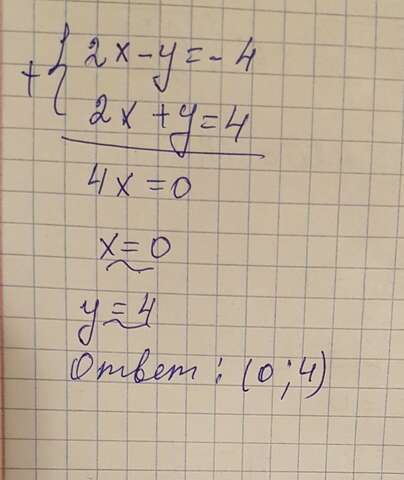 +{ 2x-y=-4
2x+y=4
4x=0
x=0
y=4
Ответ: (0;4)